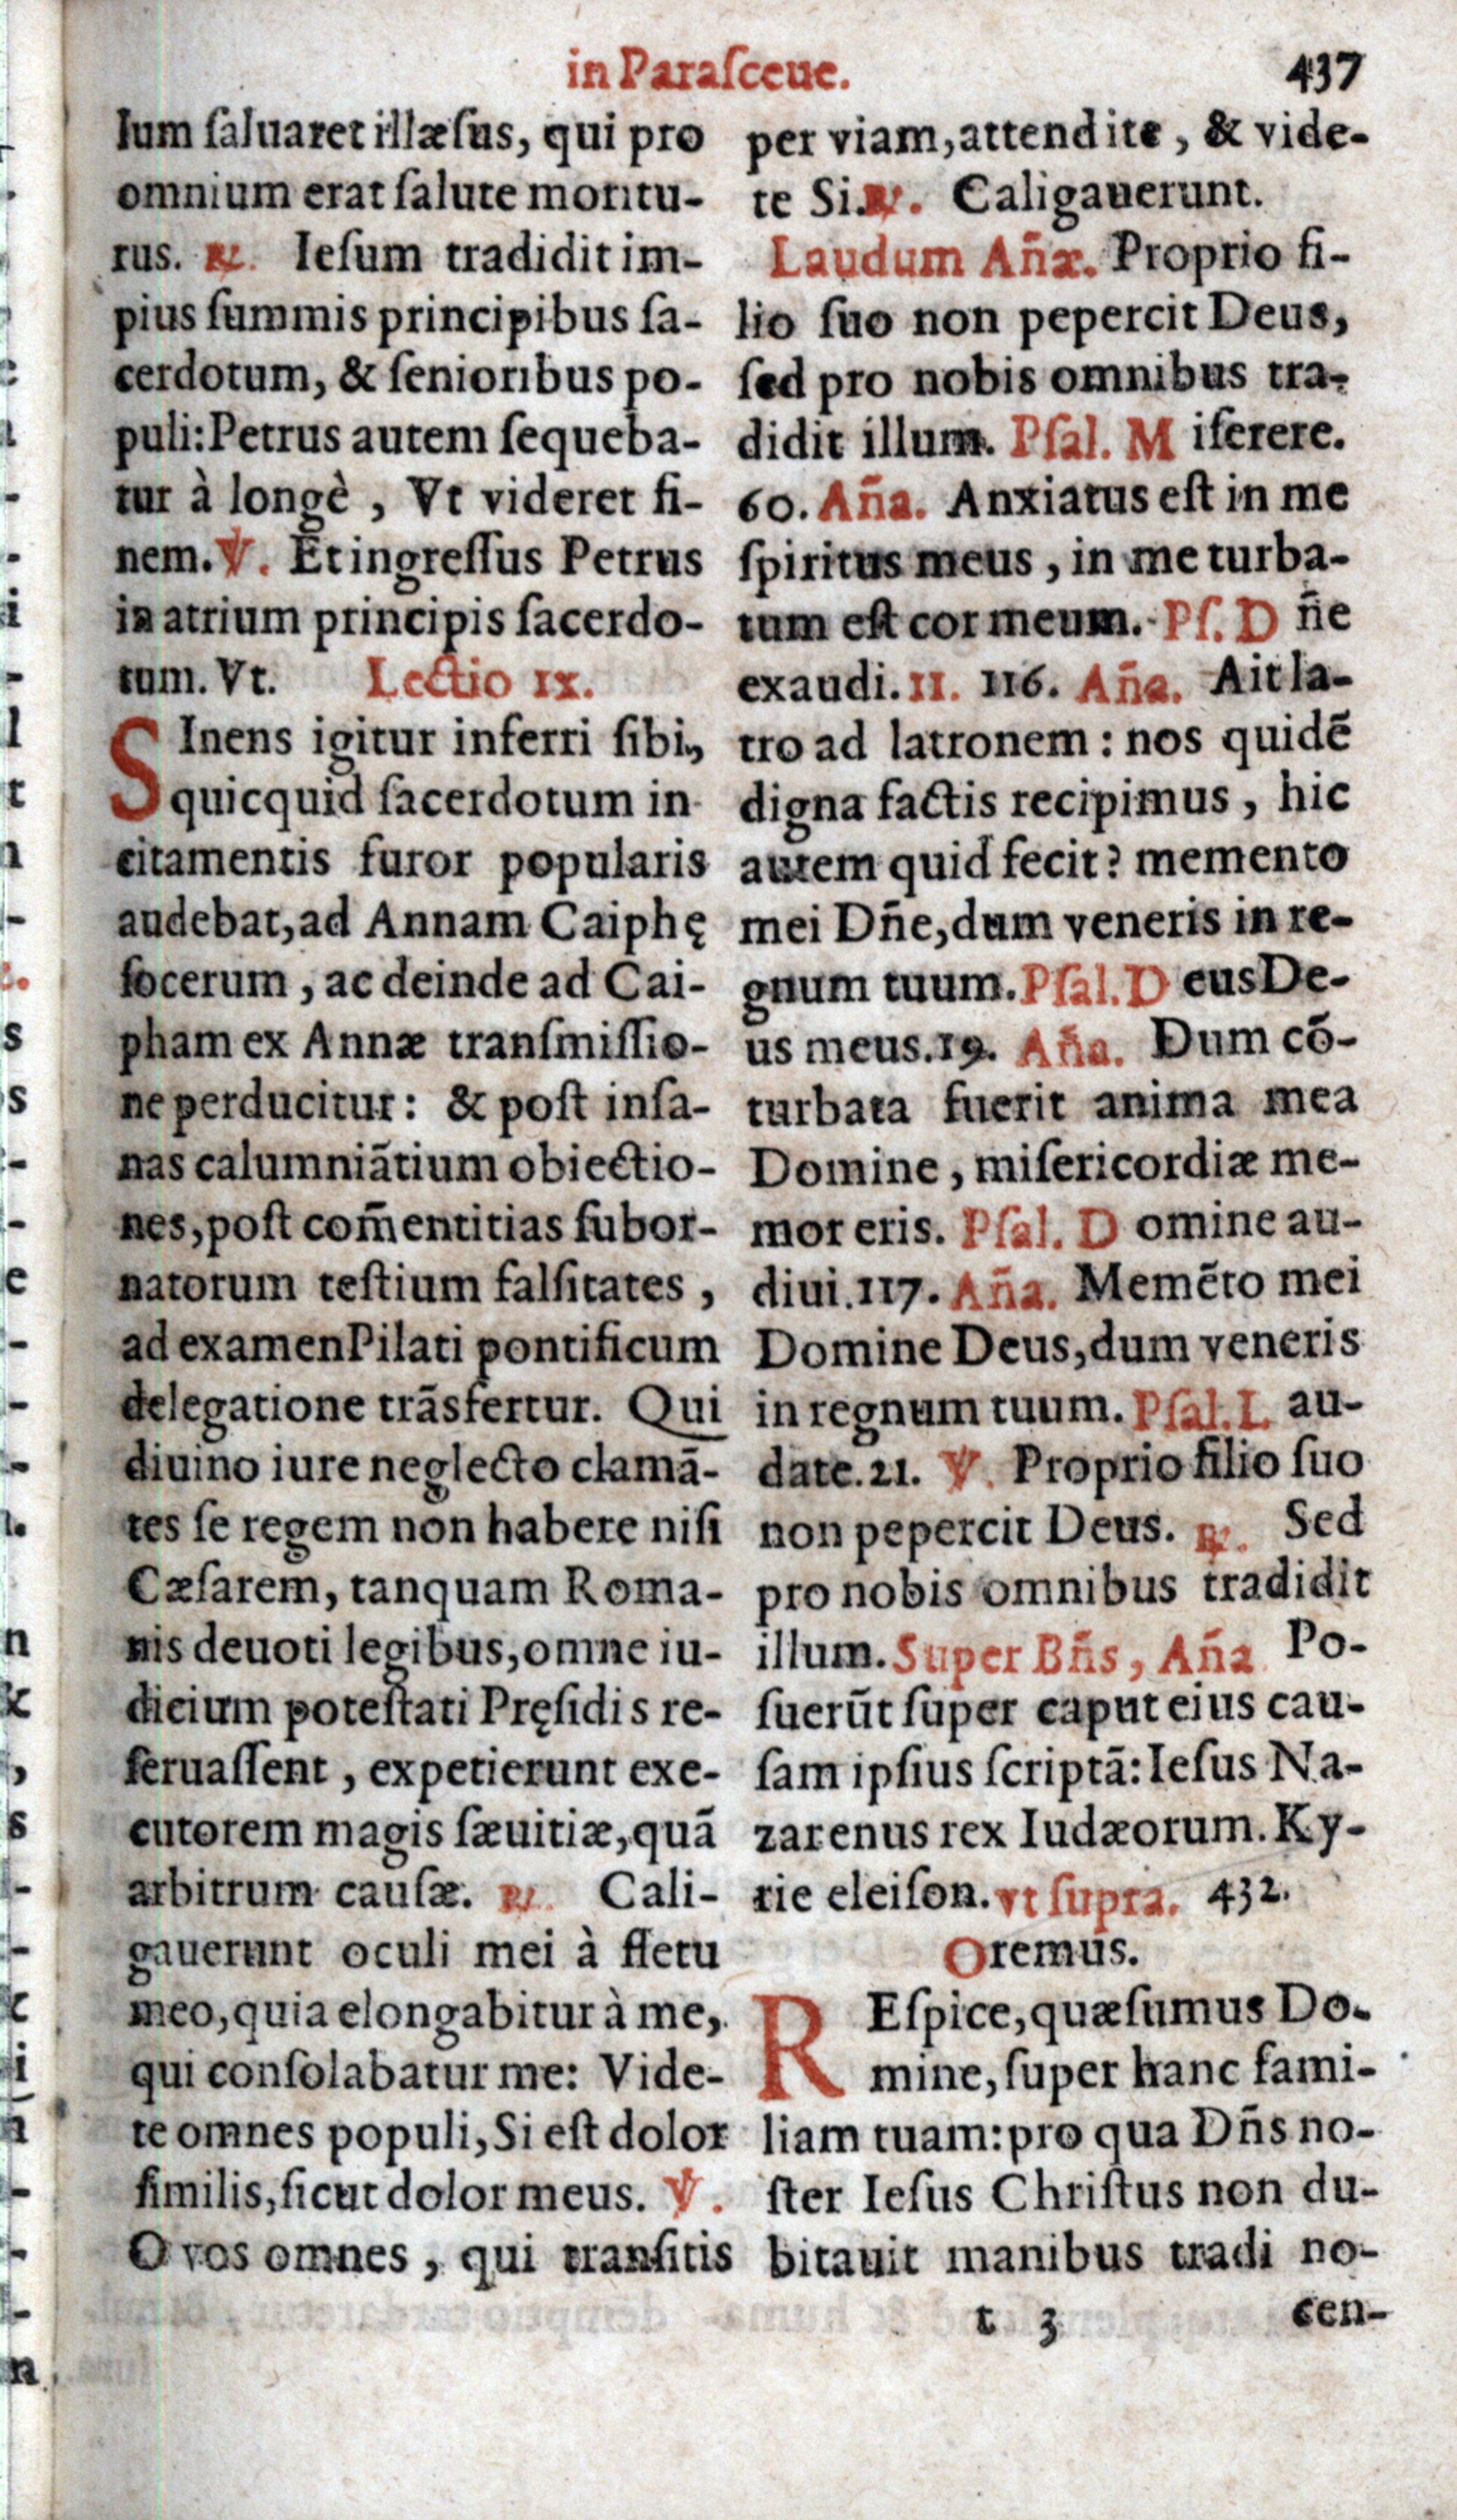 in Paraſceue.
437
lum ſaluaret illæſus, qui pro
omnium erat ſalute moritu-
rus. ℟. Ieſum tradidit im-
pius ſummis principibus ſa-
cerdotum, & ſenioribus po-
puli: Petrus autem ſequeba-
tur à longè, Vt videret fi-
nem. ℣. Et ingreſſus Petrus
in atrium principis ſacerdo-
tum. Vt. Lectio IX.
SInens igitur inferri ſibi,
quicquid ſacerdotum in
citamentis furor popularis
audebat, ad Annam Caiphę
ſocerum, ac deinde ad Cai-
pham ex Annæ tranſmiſſio-
ne perducitur: & poſt inſa-
nas calumniãtium obiectio-
nes, poſt com̃entitias ſubor-
natorum teſtium falſitates,
ad examen Pilati pontificum
delegatione trãsfertur. Qui
diuino iure neglecto clamã-
tes ſe regem non habere niſi
Cæſarem, tanquam Roma-
nis deuoti legibus, omne iu-
dicium poteſtati Pręſidis re-
ſeruaſſent, expetierunt exe-
cutorem magis ſæuitiæ, quã
arbitrum cauſæ. ℟. Cali-
gauerunt oculi mei à fletu
meo, quia elongabitur à me,
qui conſolabatur me: Vide-
te omnes populi, Si eſt dolor
ſimilis, ſicut dolor meus. ℣.
O vos omnes, qui tranſitis
per viam, attendite, & vide-
te Si. ℟. Caligauerunt.
Laudum Añæ. Proprio fi-
lio ſuo non pepercit Deus,
ſed pro nobis omnibus tra-
didit illum. Pſal. M iſerere.
60. Aña. Anxiatus eſt in me
ſpiritus meus, in me turba-
tum eſt cor meum. Pſ. D ñe
exaudi. II. 116. Aña. Ait la-
tro ad latronem: nos quidẽ
digna factis recipimus, hic
autem quid fecit? memento
mei Dñe, dum veneris in re-
gnum tuum. Pſal. D eus De-
us meus. 19. Aña. Dum cõ-
turbata fuerit anima mea
Domine, miſericordiæ me-
mor eris. Pſal. D omine au-
diui. 117. Aña. Memẽto mei
Domine Deus, dum veneris
in regnum tuum. Pſal. L au-
date. 21. ℣. Proprio filio ſuo
non pepercit Deus. ℟. Sed
pro nobis omnibus tradidit
illum. Super Bñs, Aña Po-
ſuerũt ſuper caput eius cau-
ſam ipſius ſcriptã: Ieſus Na-
zarenus rex Iudæorum. Ky-
rie eleiſon. vt ſupra. 432.
Oremus.
REſpice, quæſumus Do-
mine, ſuper hanc fami-
liam tuam: pro qua Dñs no-
ſter Ieſus Chriſtus non du-
bitauit manibus tradi no-
t 3
cen-